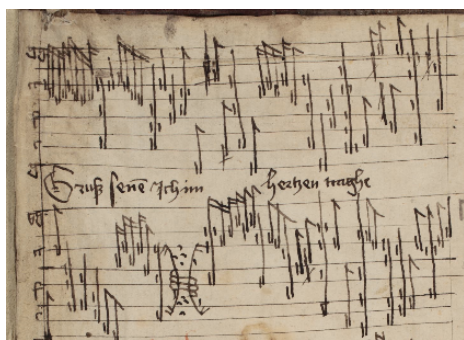 Gruß senē Ich im hertzen traghe